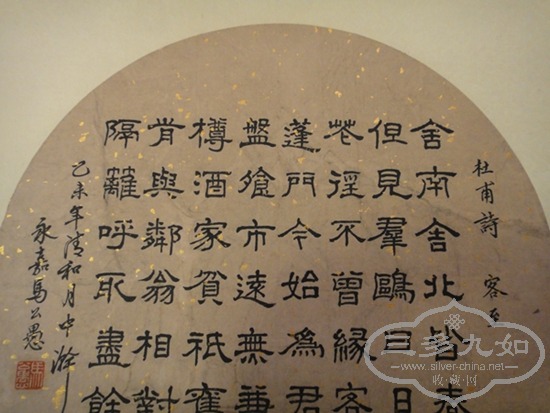 杜甫詩 客至
舍南舍北皆春
但見羣鷗日日
花徑不曾緣客
蓬門今始為君
盤飧市遠無兼
樽酒家貧祇舊
肯與鄰翁相對
隔籬呼取盡餘
乙未年清和月中澣
永嘉馬公愚
三多九如
www.silver-china.net
收藏网